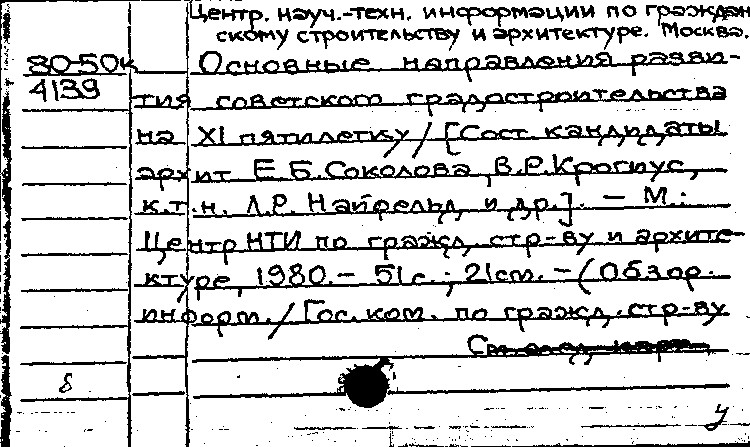 Центр. науч.-техн. информации по граждан
скому строительству и архитектуре. Москва.
80-50к Основные направления разви-
4139 тия советского градостроительства
на XI пятилетку / [Сост. кандидаты
архит Е.Б.Соколова, В.Р.Крогиус,
к.т.н. Л.Р. Найфельд, и др.]. — М.:
Центр НТИ по гражд. стр-ву и архите-
ктуре, 1980. — 51с.; 21см. — (Обзор.
информ. / Гос.ком. по гражд. стр-ву
См. след. карт.
8
у